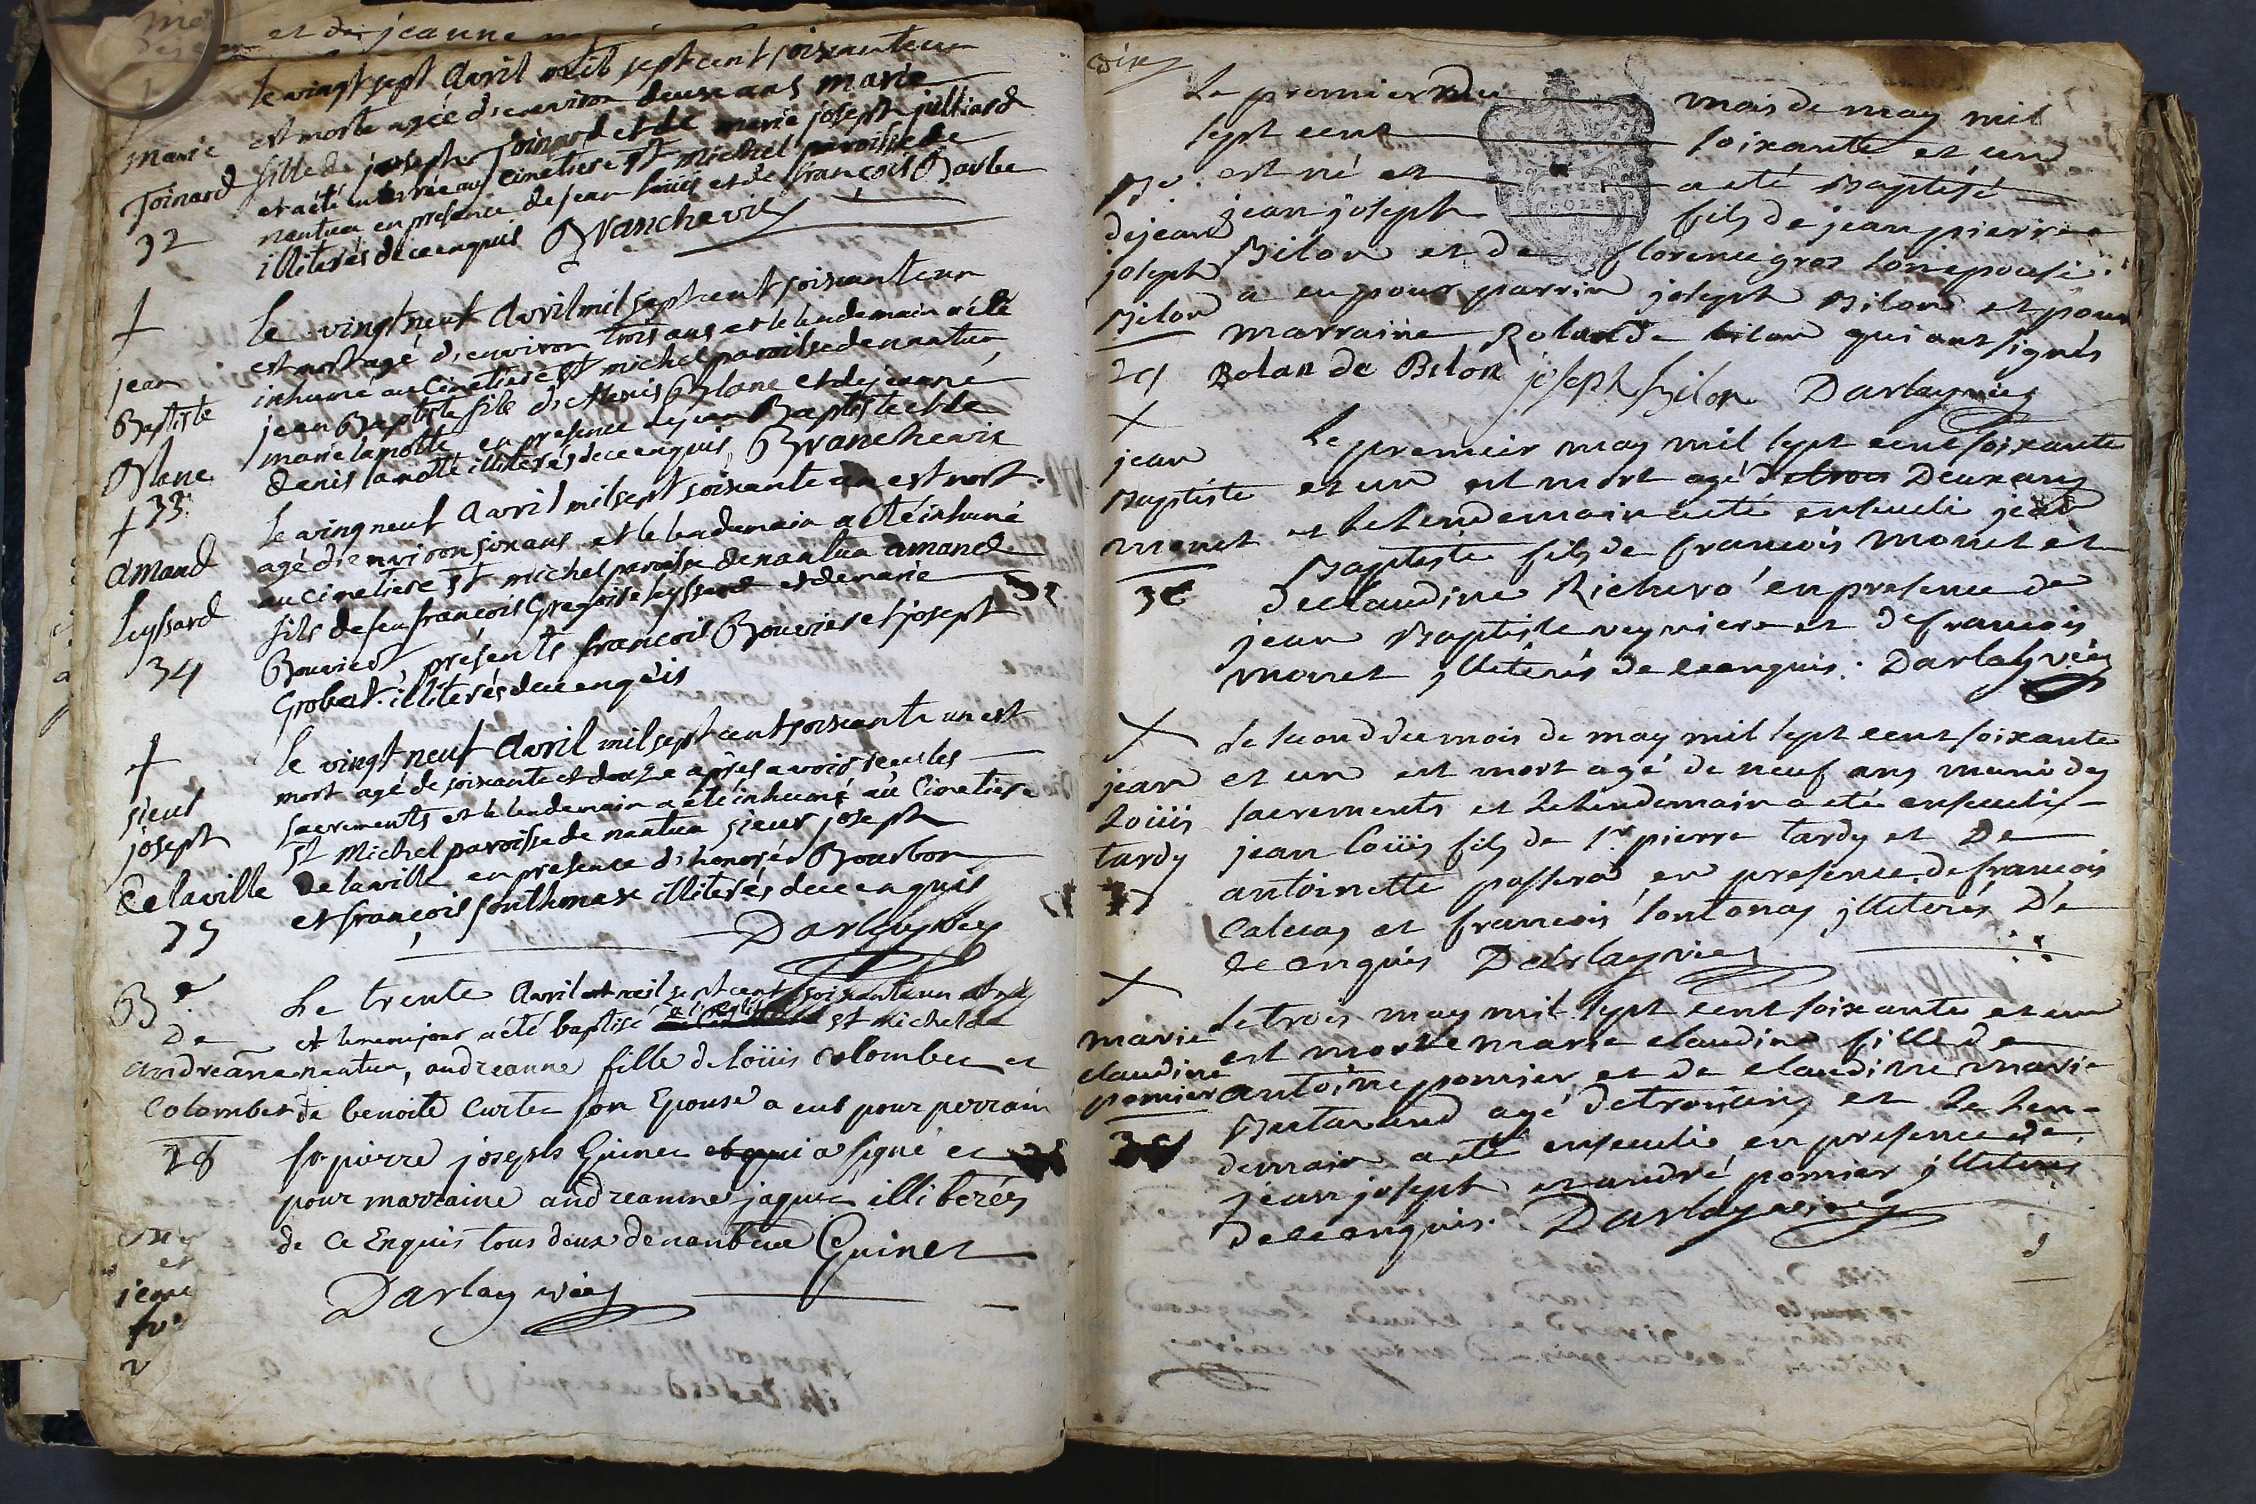 et de jeanne
le vingt sept Avril mil sept cent soixante un
est morte agée d'environ deux ans marie
Marie
fille de joseph Joinard et de marie joseph julliard
Joinard
et a été enterrée au cimetiere St Michel paroisse de
32
nantua en presence de jean louis et de françois Barbe
illiterés de ce enquis Branchevic
†
le vingt neuf Avril mil sept cent soixante un
est mort agé d'environ trois ans et le lendemain a été
jean
inhumé au cimetiere St michel paroisse de nantua
Baptiste
jean Baptiste fils d'Alexis Blanc et de jeanne
Blanc
marie lamotte en presence de jean Baptiste et de
33
denis lamotte illiterés de ce enquis Branchevic
†
le ving neuf Avril mil sept soixante un est mort
Amand
agé d'environ six ans et le lendemain a été inhumé
au cimetiere St michel paroisse de nantua Amand
Leyssard
fils de feu françois Gregoire leyssard et de marie
34
Bouvier, présents françois Bouvier et joseph
Grobat illiterés de ce enquis
†
le vingt neuf Avril mil sept cent soixante un est
mort agé de soixante et douze après avoir reçu les
sieur
sacrements et le lendemain a été inhumé au Cimetiere
joseph
St Michel paroisse de nantua sieur joseph
Delaville
De laville en presence d'honoré Bourbon
35
et françois sonthonax illiterés de ce enquis
Darlay vic
B e
Le trente Avril mil sept cent soixante un est né
De
et le meme jour a été baptisé a l'eglise St Michel de
andreanne
nantua, andreanne fille de loüis colombet et
Colombet
de benoite Curtet son Epouse a eut pour parrain
28
sr pierre joseph Guinet qui a signé et
pour marraine andreanne jaquet illiterées
de ce Enquis tous deux de nantua Guinet
Darlay vic
Le premier du mois de may mil
sept cent soixante et un
est né et a eté Baptisé
de jean
jean joseph fils de jean pierre
joseph
Bilon et de florence gros son epouse
Bilon
a eu pour parrin joseph Bilon et pour
marraine Rolande bilon qui ont signés
29
Rolande Bilon joseph Bilon Darlay vic
†
Le premier may mil sept cent soixante
jean
et un est mort agé de trois Deux ans
Baptiste
et le lendemain a eté enseveli jean
monet
Baptiste fils de francois monet et
36
de claudine Richero en presence de
jean Baptiste veyriere et de francois
monet illiterés de ce enquis. Darlay vic
†
Le second du mois de may mil sept cent soixante
jean
et un est mort agé de neuf ans muni des
Loüis
sacrements et le lendemain a eté enseveli
tardy
jean loüis fils de sr pierre tardy et De
37
antoinette passerat en presence de francois
et francois sontonas illiterés De
ce enquis Darlay vic
†
Le trois may mil sept cent soixante et un
marie
est morte marie claudine fille de
claudine
antoine pomier et de claudine marie
pomier
agé de trois ans et le len-
38
demain a eté enseveli en presence de
jean joseph et andré pomier illiterés
de ce enquis. Darlay vic